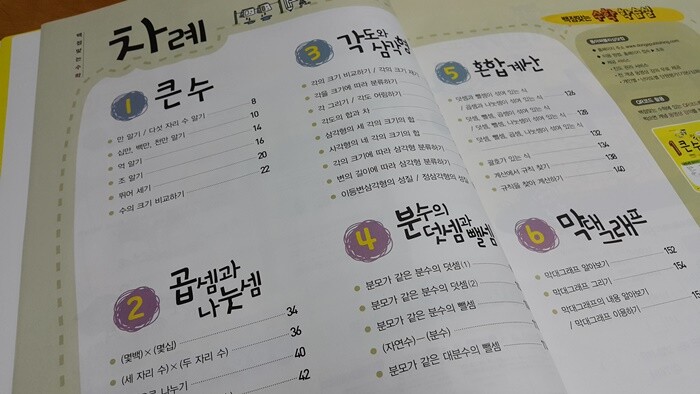 차례
1 큰 수
만 알기 / 다섯 자리 수 알기 8
십만, 백만, 천만 알기 10
억 알기 14
조 알기 16
뛰어 세기 20
수의 크기 비교하기 22
2 곱셈과
나눗셈
(몇백)×(몇십) 34
(세 자리 수)×(두 자리 수) 36
나누기 40
42
3 각도와
삼각형
각의 크기 비교하기 / 각의 크기
각을 크기에 따라 분류하기
각 그리기 / 각도 어림하기
각도의 합과 차
삼각형의 세 각의 크기의 합
사각형의 네 각의 크기의 합
각의 크기에 따라 삼각형 분류하기
변의 길이에 따라 삼각형 분류하기
이등변삼각형의 성질 / 정삼각형의 성질
4 분수의
덧셈과
뺄셈
분모가 같은 분수의 덧셈(1)
분모가 같은 분수의 덧셈(2)
분모가 같은 분수의 뺄셈
(자연수)-(분수)
분모가 같은 대분수의 뺄셈
5 혼합 계산
덧셈과 뺄셈이 섞여 있는 식
/ 곱셈과 나눗셈이 섞여 있는 식 126
덧셈, 뺄셈, 곱셈이 섞여 있는 식
/ 덧셈, 뺄셈, 나눗셈이 섞여 있는 식 128
덧셈, 뺄셈, 곱셈, 나눗셈이 섞여 있는 식 132
괄호가 있는 식 134
계산에서 규칙 찾기 138
규칙을 찾아 계산하기 140
6 막대그래프
막대그래프 알아보기 152
막대그래프 그리기 154
막대그래프의 내용 알아보기
/ 막대그래프 이용하기